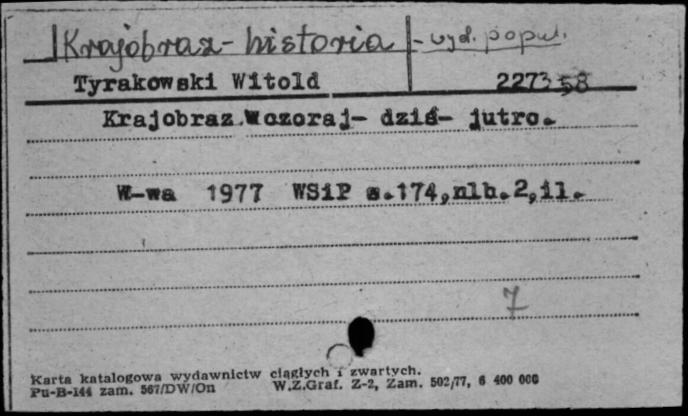 Krajobraz - historia - wyd. popul.
Tyrakowski Witold 227358
Krajobraz.Wczoraj- dziś- jutro.
W-wa 1977 WSiP s.174,nlb.2,il.
7
Karta katalogowa wydawnictw ciągłych i zwartych.
Pu-B-144 zam. 567/DW/On W.Z.Graf. Z-2, Zam. 502/77, 6 400 000